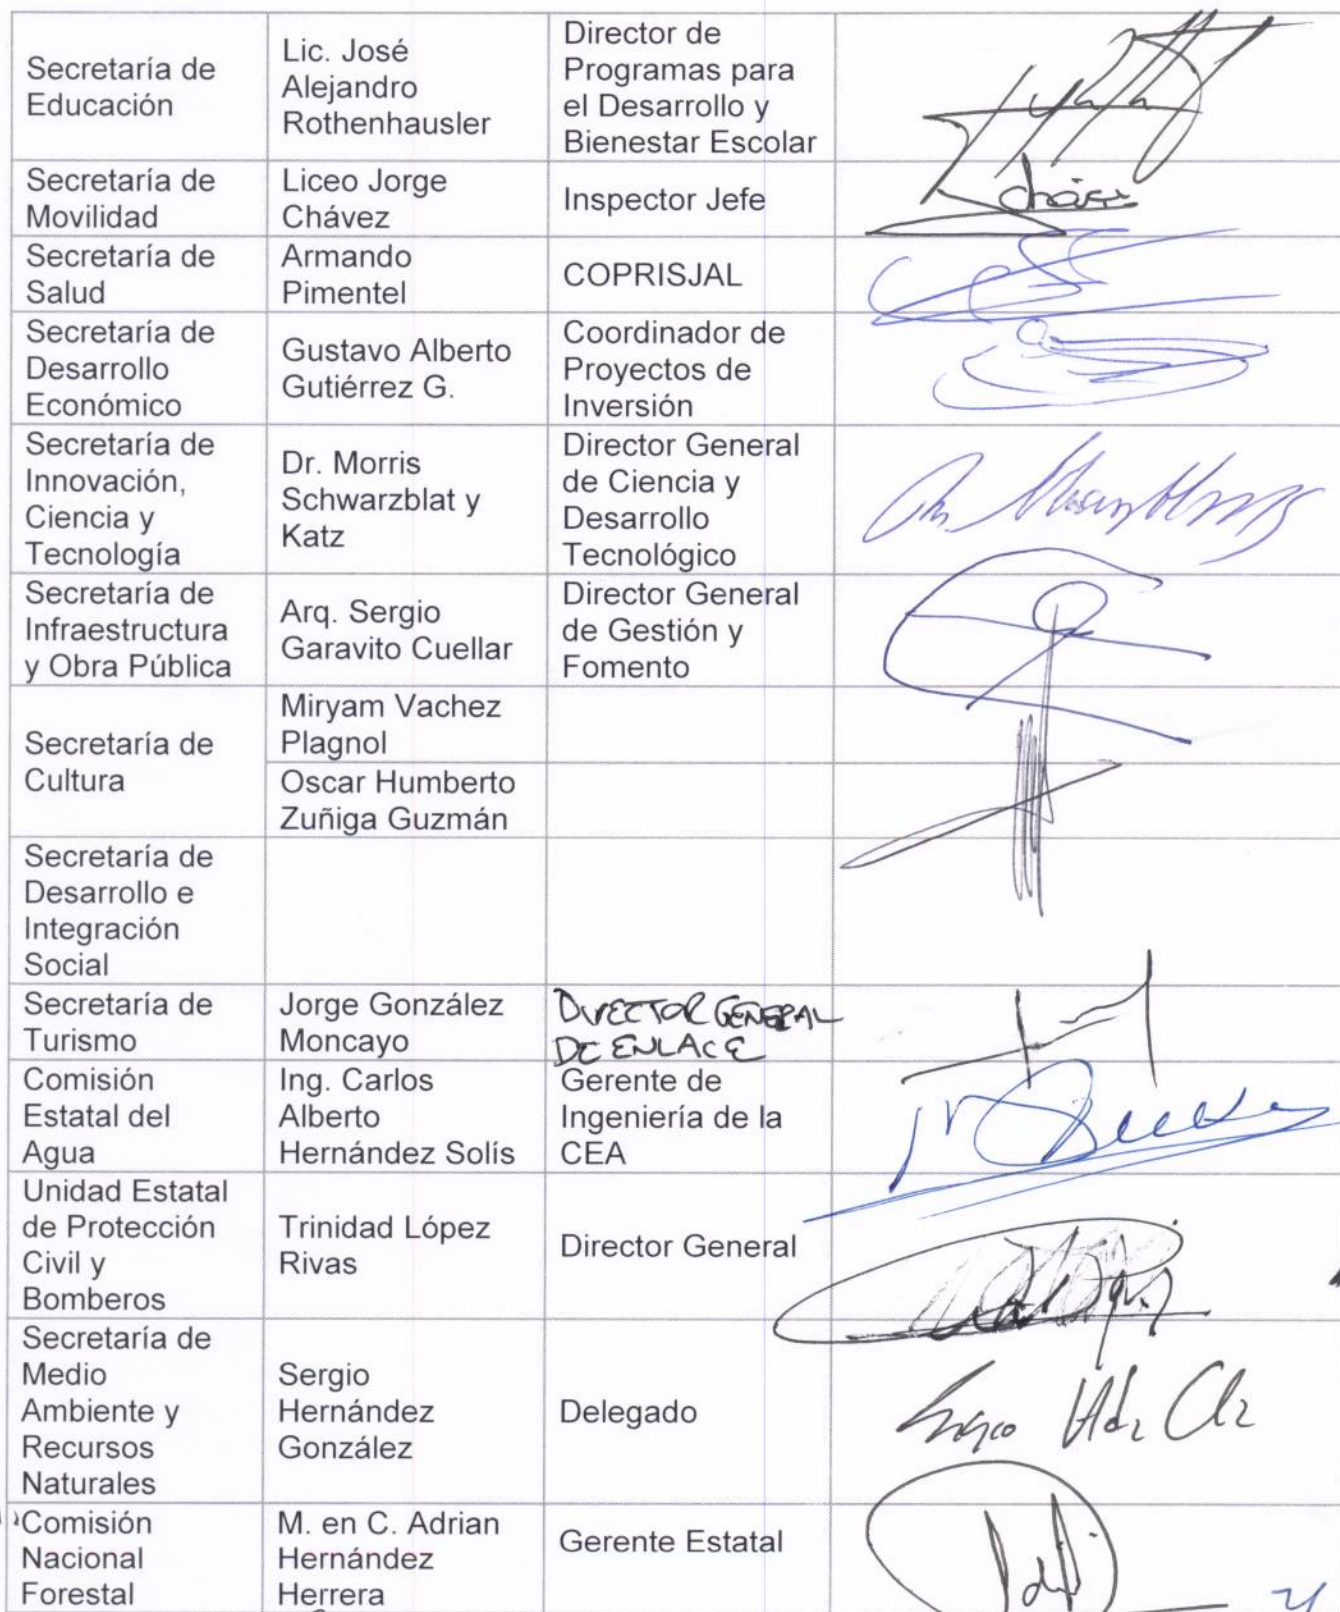 Secretaría de
Educación
Lic. José
Alejandro
Rothenhausler
Director de
Programas para
el Desarrollo y
Bienestar Escolar
Secretaría de
Movilidad
Liceo Jorge
Chávez
Inspector Jefe
Secretaría de
Salud
Armando
Pimentel
COPRISJAL
Secretaría de
Desarrollo
Económico
Gustavo Alberto
Gutiérrez G.
Coordinador de
Proyectos de
Inversión
Secretaría de
Innovación,
Ciencia y
Tecnología
Dr. Morris
Schwarzblat y
Katz
Director General
de Ciencia y
Desarrollo
Tecnológico
Secretaría de
Infraestructura
y Obra Pública
Arq. Sergio
Garavito Cuellar
Director General
de Gestión y
Fomento
Secretaría de
Cultura
Miryam Vachez
Plagnol
Oscar Humberto
Zuñiga Guzmán
Secretaría de
Desarrollo e
Integración
Social
Secretaría de
Turismo
Jorge González
Moncayo
DIRECTOR GENERAL
DE ENLACE
Comisión
Estatal del
Agua
Ing. Carlos
Alberto
Hernández Solís
Gerente de
Ingeniería de la
CEA
Unidad Estatal
de Protección
Civil y
Bomberos
Trinidad López
Rivas
Director General
Secretaría de
Medio
Ambiente y
Recursos
Naturales
Sergio
Hernández
González
Delegado
Comisión
Nacional
Forestal
M. en C. Adrian
Hernández
Herrera
Gerente Estatal